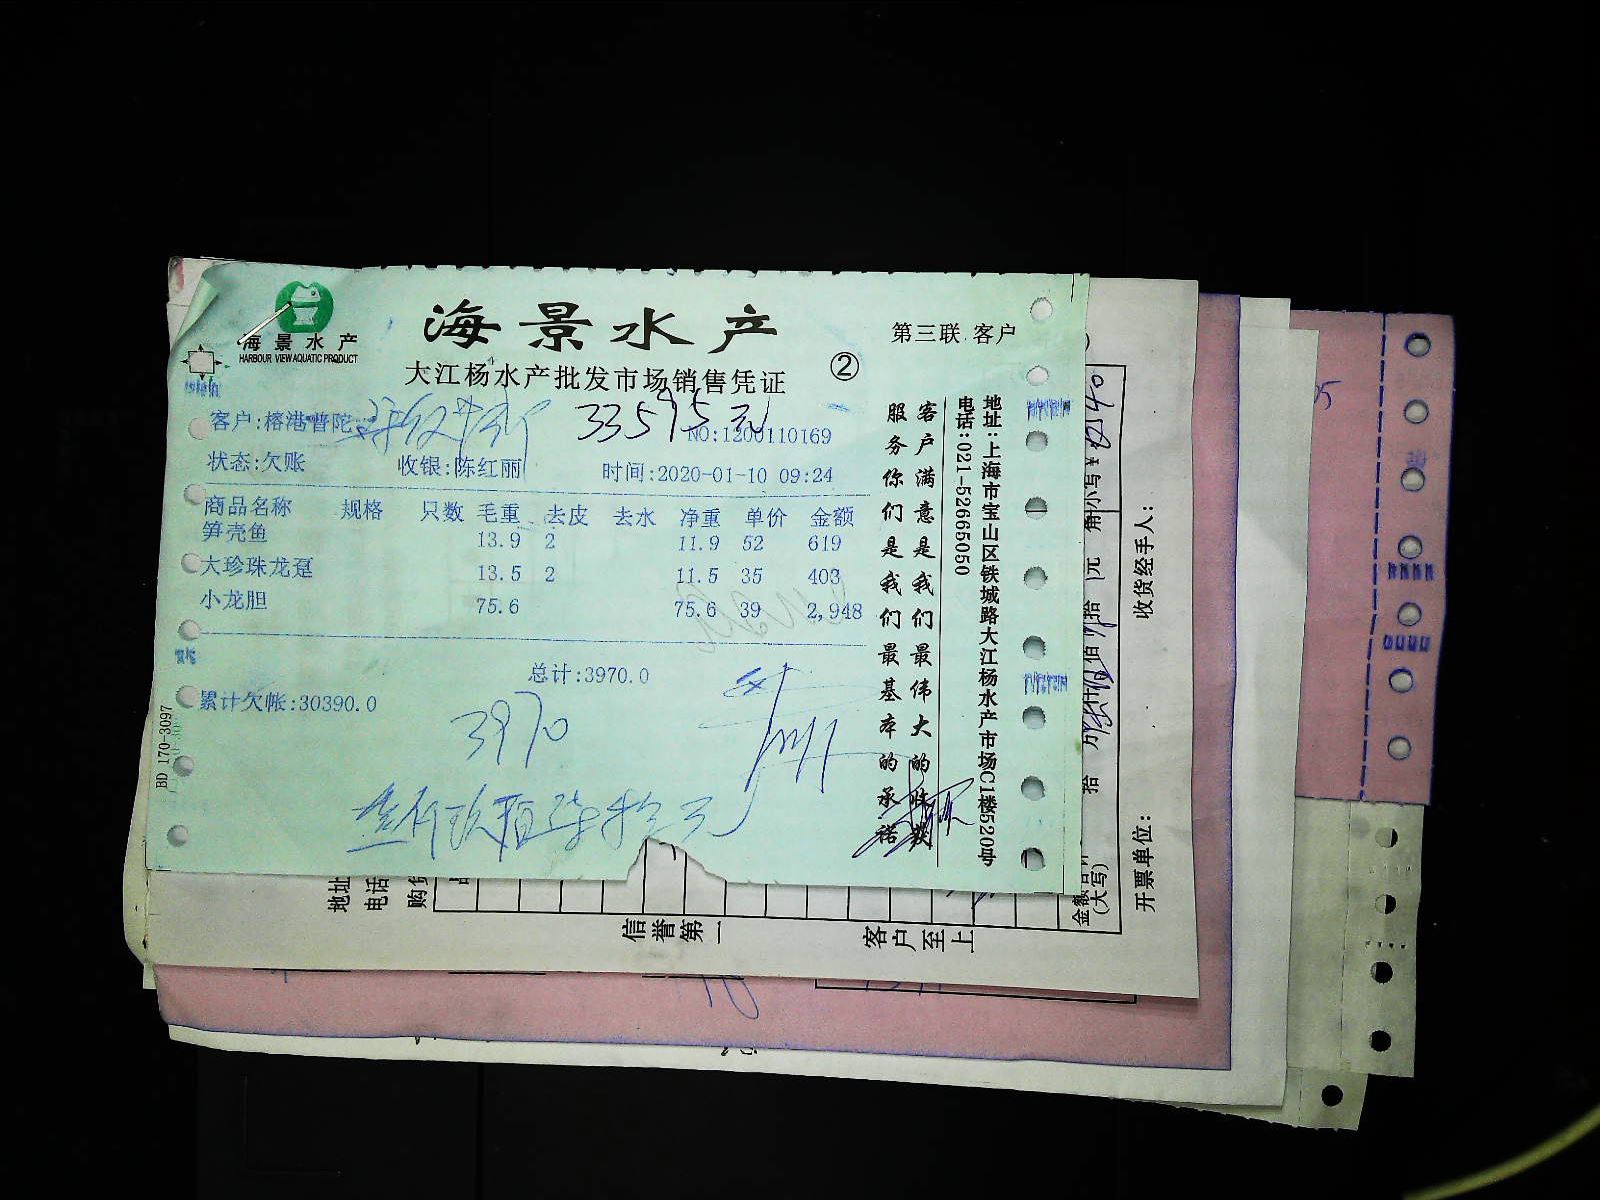 海景水产
HARBOUR VIEW AQUATIC PRODUCT
海景水产
第三联 客户
大江杨水产批发市场销售凭证
②
客户:榕港普陀
33595元
NO:1200110169
状态:欠账 收银:陈红丽 时间:2020-01-10 09:24
商品名称 规格 只数 毛重 去皮 去水 净重 单价 金额
笋壳鱼 13.9 2 11.9 52 619
大珍珠龙趸 13.5 2 11.5 35 403
小龙胆 75.6 75.6 39 2,948
总计:3970.0
累计欠帐:30390.0
3970
叁仟玖佰柒拾元
BD 170-3097
客户满意是我们最伟大的收获
服务你们是我们最基本的承诺
地址:上海市宝山区铁城路大江杨水产市场C1楼520号
电话:021-52665050
小写¥
收货经手人:
开票单位:
(大写)
地址
电话
购货
信誉第一
客户至上